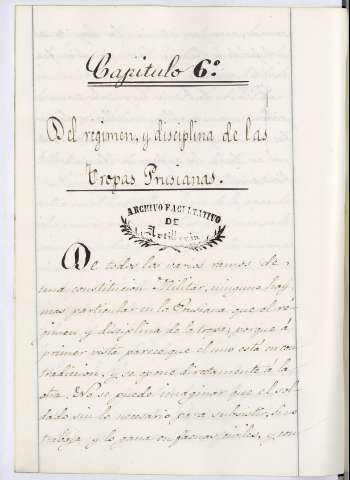 Capitulo 6.º
Del regimen, y disciplina de las
Tropas Prusianas.
ARCHIVO FACULTATIVO
DE
Artillería
De todos los varios ramos de
una constitucion Militar, ninguno hay
mas particular en la Prusiana, que el ré-
gimen, y disciplina de la tropa; porque á
primer vista parece que el uno está en con-
tradicion, y se opone directamente á la
otra. No se puede imaginar que el sol-
dado sin lo necesario para subsistir, sino
trabaja y lo gana en faenas civiles, y con